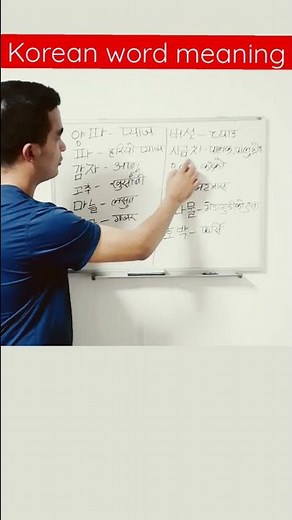 Korean word meaning
양파 - प्याज
파 - हरियो प्याज
감자 - आलु
고추 - खुर्सानी
마늘 - लसुन
गाजर
버섯 - च्याउ
시금치 - पालक,
काक्रो
나물 -
호박 - फर्सि